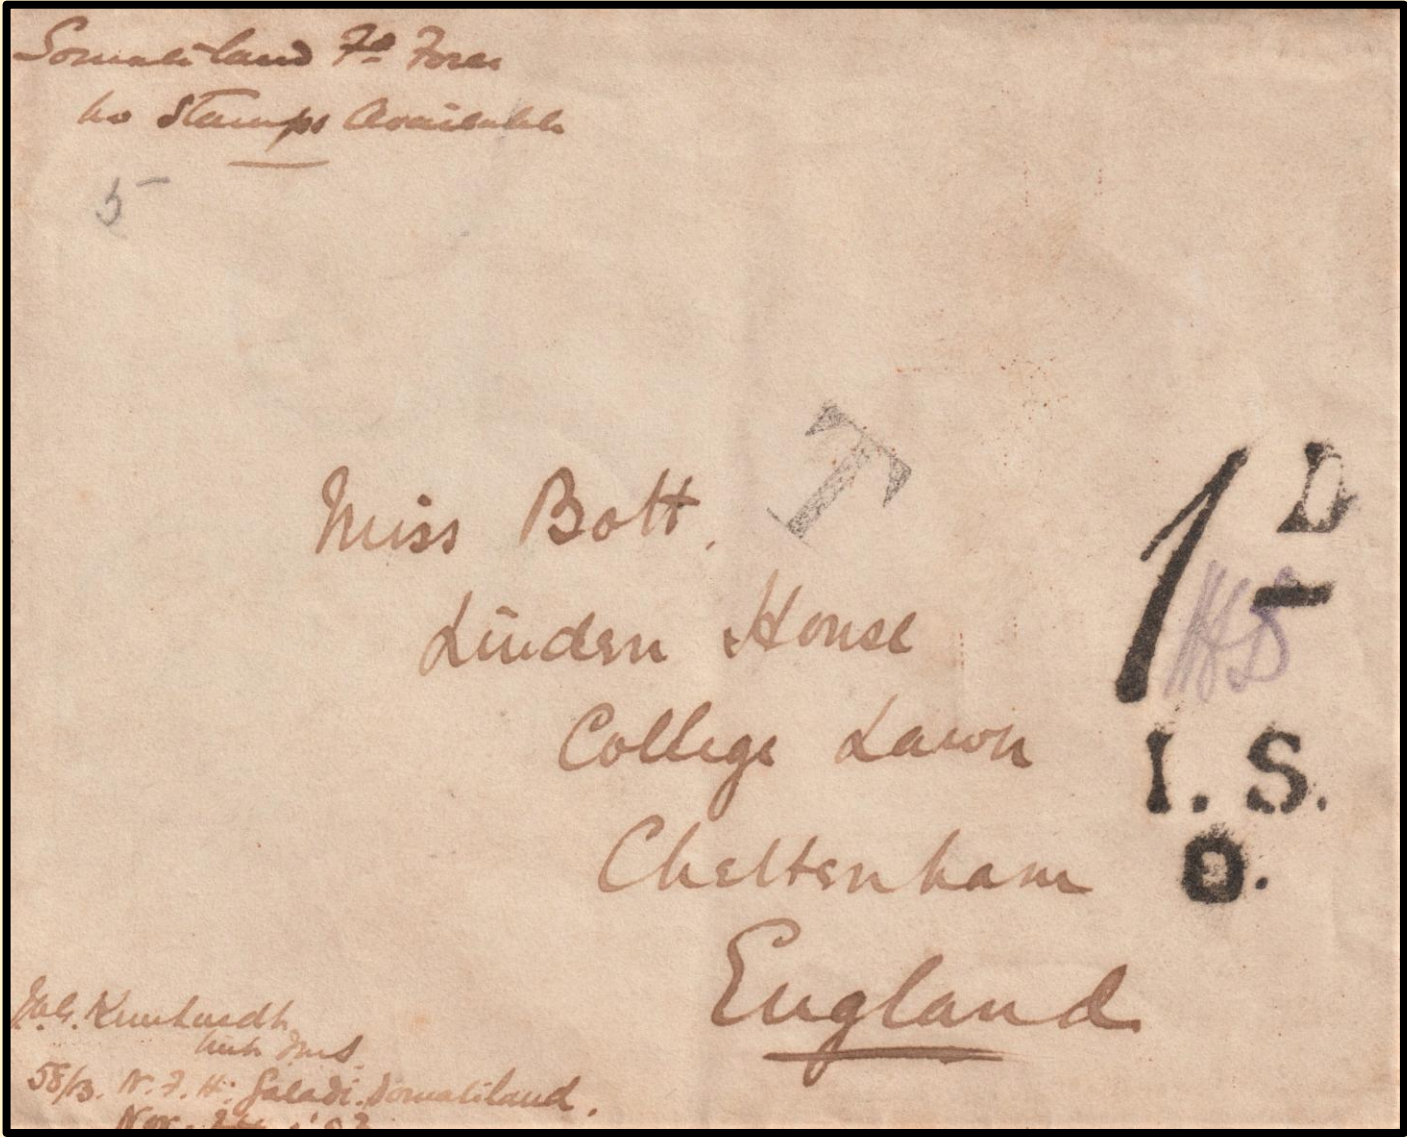 Somaliland Fd Force
No Stamps Available
5
T
Miss Bott.
Linden House
College Lawn
Cheltenham
England
1D
I. S.
O.
58/B. N. F. H. Galadi. Somaliland.
Nov.